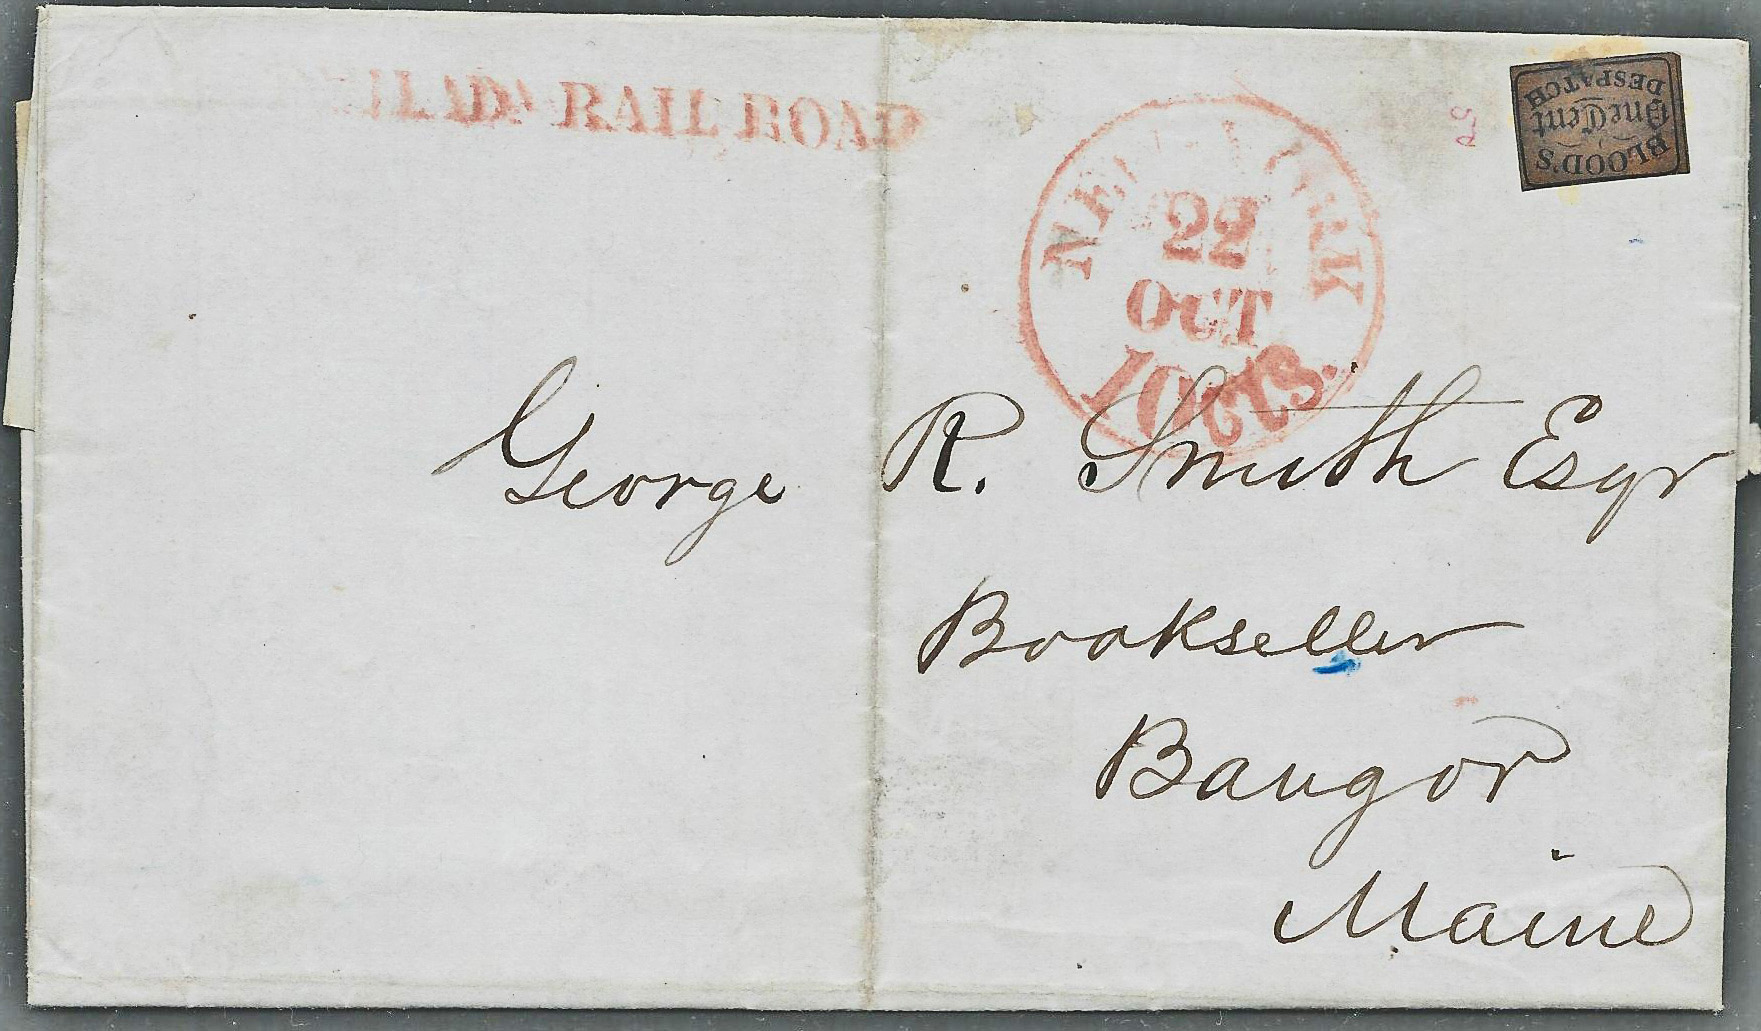 ILADA RAIL ROAD
NEW YORK
22
OCT
10cts.
BLOOD'S
One Cent
DESPATCH
George R. Smith Esqr
Bookseller
Bangor
Maine